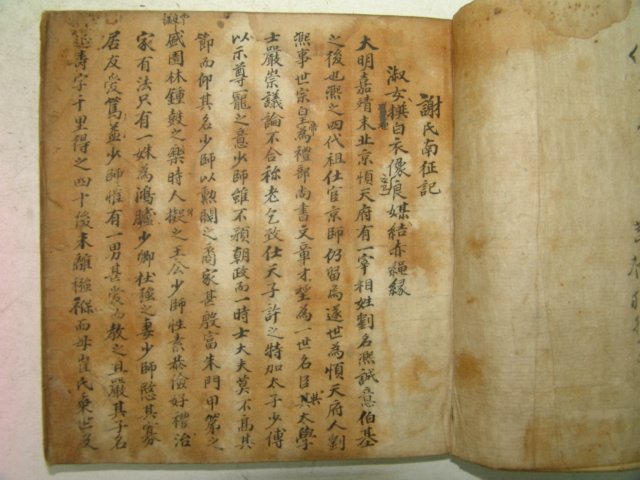 謝氏南征記
淑女撰白衣像良媒結赤繩緣
大明嘉靖末北京順天府有一宰相姓劉名熙誠意伯基
之後也熙之四代祖仕官京師仍留為遂世為順天府人劉
熙事世宗皇帝為禮部尚書文章才望為一世名臣其太學
士嚴崇議論不合称老乞致仕天子許之特加太子少傅
以示尊寵之意少師雖不預朝政而一時士大夫莫不高其
節而仰其名少師以勲閥之裔家甚殷富朱門甲第之
盛園林鍾鼓之樂時人擬之王公少師性素恭儉好禮治
家有法只有一妹為鴻臚少卿杜強之妻少師愍其寡
居友愛篤益少師惟有一男甚愛而教之且嚴其子名
延壽字千里得之四十後未離襁褓而母崔氏棄世及